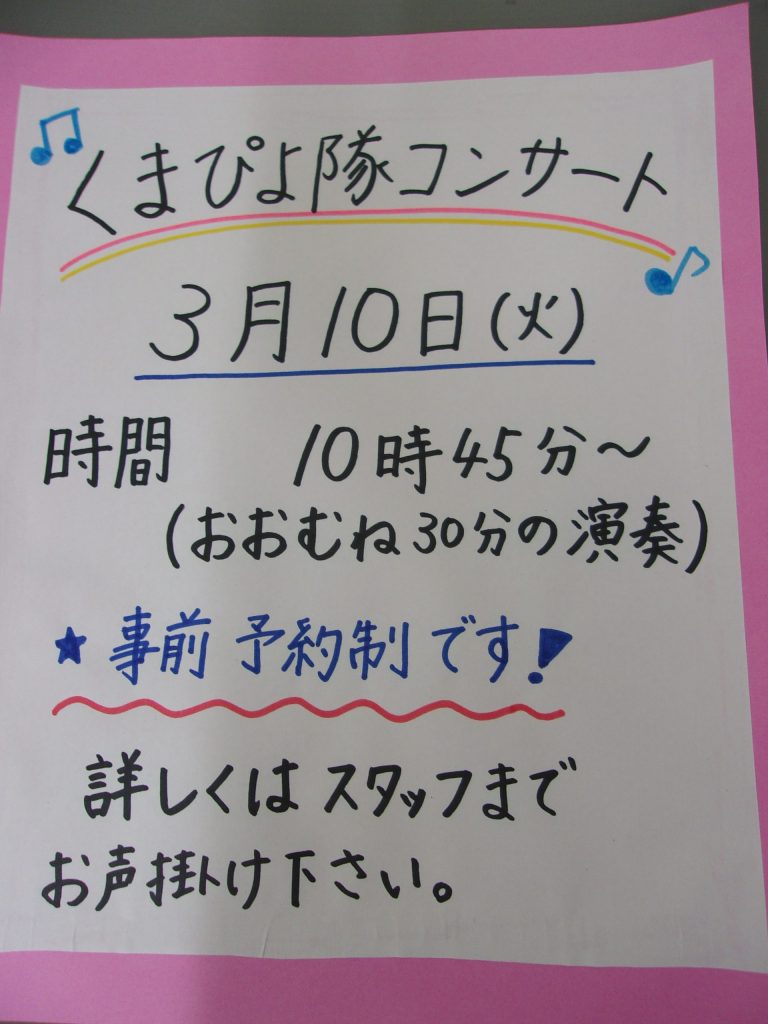 くまぴよ隊コンサート
3月10日(火)
時間　10時45分～
(おおむね30分の演奏)
★事前予約制です!
詳しくはスタッフまで
お声掛け下さい。